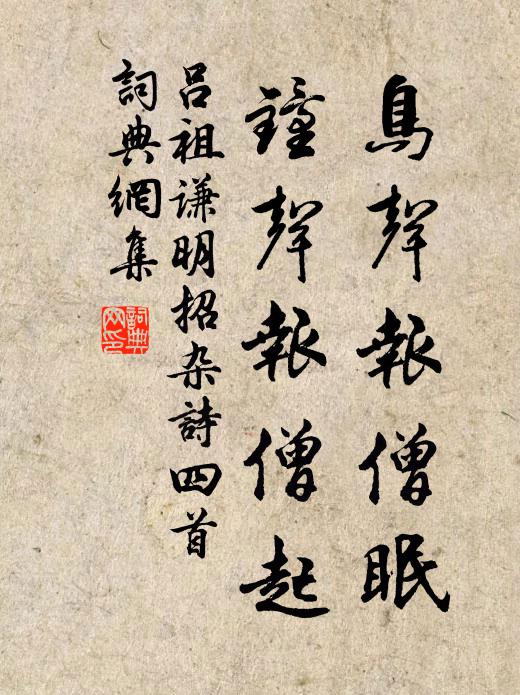 鳥聲報僧眠
鐘聲報僧起
呂祖謙明招杂詩四首
詞典網集
詞典網印